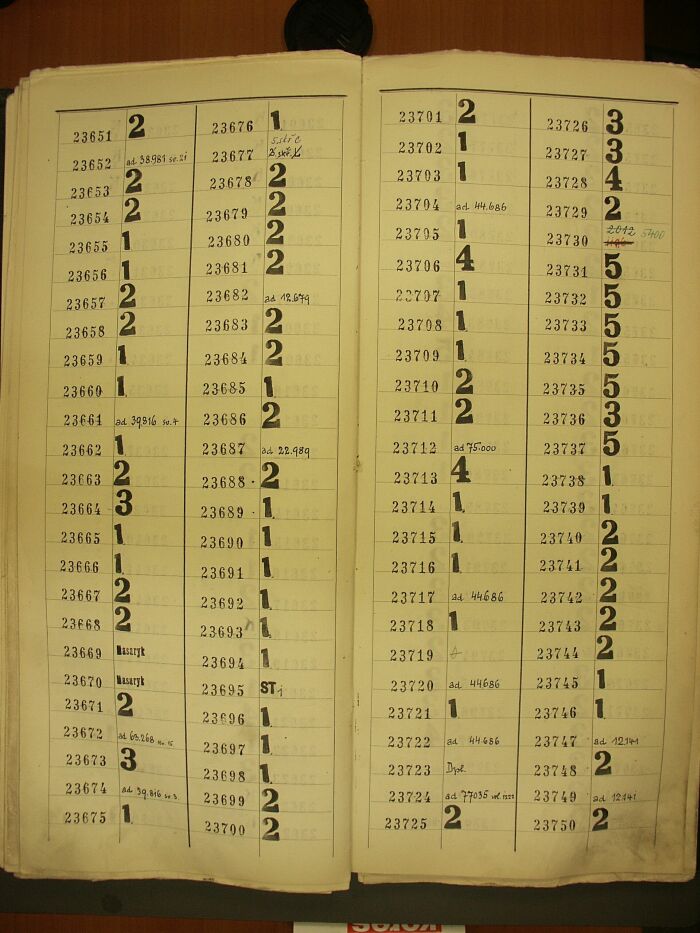 23651 2
23652 ad 38981 sv. 21
23653 2
23654 2
23655 1
23656 1
23657 2
23658 2
23659 1.
23660 1.
23661 ad 39816 sv. 4
23662 1
23663 2
23664 3
23665 1
23666 1.
23667 2
23668 2
23669 Masaryk
23670 Masaryk
23671 2
23672 ad 63.268
23673 3
23674 ad 39.816 sv. 3.
23675 1.
23676 1.
23677
23678 2
23679 2
23680 2
23681 2
23682 ad 12.679
23683 2
23684 2
23685 1.
23686 2
23687 ad 22.989
23688 2
23689 1.
23690 1.
23691 1.
23692 1.
23693 1.
23694 1
23695 ST
23696 1.
23697 1.
23698 1.
23699 2
23700 2
23701 2
23702 1
23703 1
23704 ad 44.686
23705 1
23706 4
23707 1.
23708 1.
23709 1.
23710 2
23711 2
23712 ad 75.000
23713 4
23714 1.
23715 1.
23716 1.
23717 ad 44686
23718 1
23719
23720 ad 44686
23721 1
23722 ad 44.686
23723
23724 ad 77035
23725 2
23726 3
23727 3
23728 4
23729 2
23730 2012 5400
23731 5
23732 5
23733 5
23734 5
23735 5
23736 3
23737 5
23738 1.
23739 1.
23740 2
23741 2
23742 2
23743 2
23744 2
23745 1
23746 1.
23747 ad 12.141
23748 2
23749 ad 12.141
23750 2